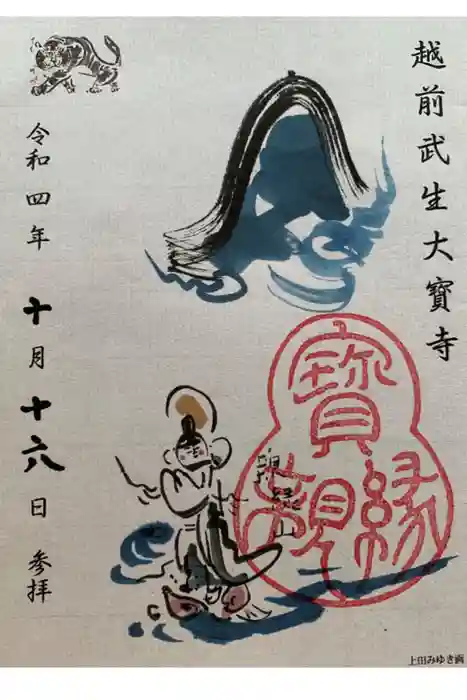 越前武生大寶寺
寶
親縁
親縁山
令和四年
十月十六日 参拝
上田みゆき画